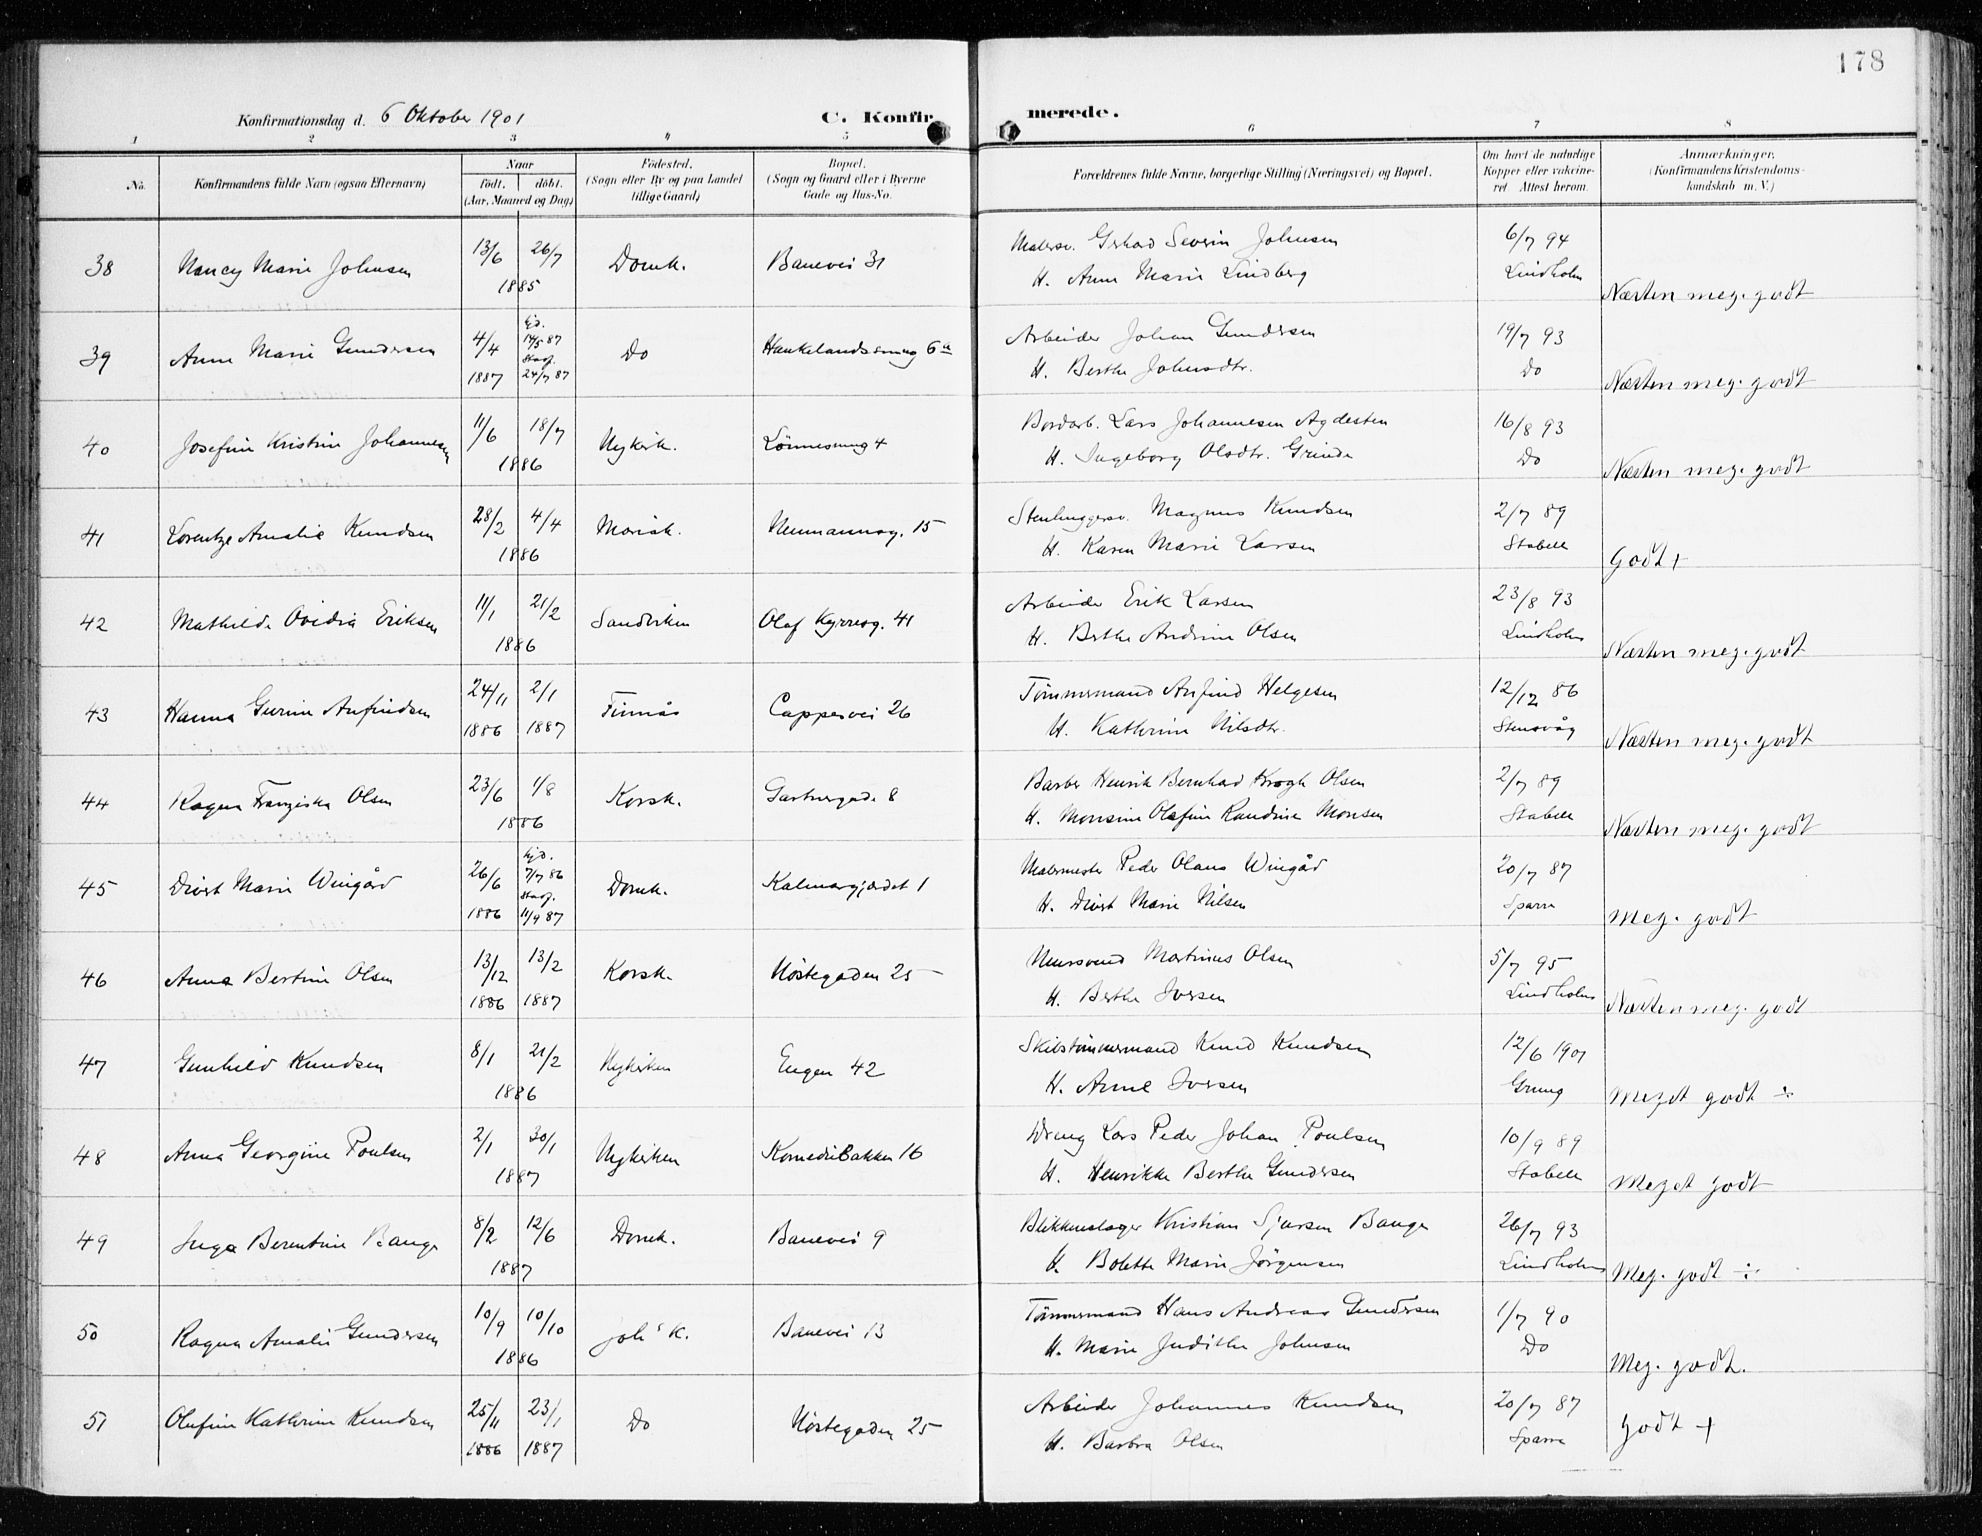 178
Konfirmationsdag d. 6 Oktober 1901
C. Konfirmerede.
1 2 3 4 5 6 7 8
No.
Konfirmandens fulde Navn (ogsaa Efternavn)
Naar
født. døbt.
(Aar, Maaned og Dag)
Födested.
(Sogn eller By og paa Landet
tillige Gaard)
Bopæl.
(Sogn og Gaard eller i Byerne
Gade og Hus-No.
Forældrenes fulde Navne, borgerlige Stilling (Næringsvei) og Bopæl.
Om havt de naturlige
Kopper eller vakcine-
ret. Attest herom.
Anmærkninger.
(Konfirmandens Kristendoms-
kundskab m. V.)
38 Nancy Marie Johnsen 13/6 26/7 1885 Domk. Banevei 31
Malersv. Gerhard Severin Johnsen
H. Anne Marie Lindberg
6/7 94 Lindholm
Næsten meg. godt
39 Anne Marie Gundersen 4/4 1887 hjd. 14/5 87 Stadf. 24/7 87 Do Haukelandssmug 6a
Arbeider Johan Gundersen
H. Berthe Johnsdtr.
19/7 93 Do
Næsten meg. godt
40 Josefine Kristine Johannesen 11/6 18/7 1886 Nykirk. Lönnesmug 4
Bordarb. Lars Johannesen Agdesten
H. Ingeborg Olsdtr. Grinde
16/8 93 Do
Næsten meg. godt
41 Lorentze Amalie Knudsen 28/2 4/4 1886 Mariak. Neumannsg. 15
Stenhuggersv. Magnus Knudsen
H. Karen Marie Larsen
2/7 89 Stabell
Godt +
42 Mathilde Ovidia Eriksen 11/1 21/2 1886 Sandviken Olaf Kyrresg. 41
Arbeider Erik Larsen
H. Berthe Andrine Olsen
23/8 93 Lindholm
Næsten meg. godt
43 Hanna Gurine Anfindsen 24/11 1886 2/1 1887 Finnås Cappesvei 26
Tømmermand Anfind Helgesen
H. Kathrine Nilsdtr.
12/12 86 Stensvåg
Næsten meg. godt
44 Ragna Franziska Olsen 23/6 1/8 1886 Korsk. Gartnergade 8
Barber Henrik Bernhard Krogh Olsen
H. Monsine Olefine Randine Monsen
2/7 89 Stabell
Næsten meg. godt
45 Divert Marie Wingård 26/6 1886 hjd. 7/7 86 Stadf. 11/9 87 Domk. Kalmargjerdet 1
Malermester Peder Olaus Wingård
H. Divert Marie Nilsen
20/7 87 Sparre
Meg. godt
46 Anna Bertine Olsen 13/12 1886 13/2 1887 Korsk. Nöstegaden 25
Mursvend Martinus Olsen
H. Berthe Iversen
5/7 95 Lindholm
Næsten meg. godt
47 Gunhild Knudsen 8/1 21/2 1886 Nykirken Engen 42
Skibstömmermand Knud Knudsen
H. Anne Iversen
12/6 1901 Grung
Meget godt ÷
48 Anna Georgine Poulsen 2/1 30/1 1887 Nykirken Komediebakken 16
Dreng Lars Peder Johan Poulsen
H. Henrikke Berthe Gundersen
10/9 89 Stabell
Meget godt
49 Inga Berentine Bauge 8/2 12/6 1887 Domk. Banevei 9
Blikkenslager Kristian Sjursen Bauge
H. Bolette Marie Jörgensen
26/7 93 Lindholm
Meg. godt ÷
50 Ragna Amalie Gundersen 10/9 10/10 1886 Joh's K. Banevei 13
Tömmermand Hans Andreas Gundersen
H. Marie Judithe Johnsen
1/7 90 Do
Meg. godt.
51 Olufine Kathrine Knudsen 25/11 1886 23/1 1887 Do Nöstegaden 25
Arbeider Johannes Knudsen
H. Barbra Olsen
20/7 87 Sparre
Godt +